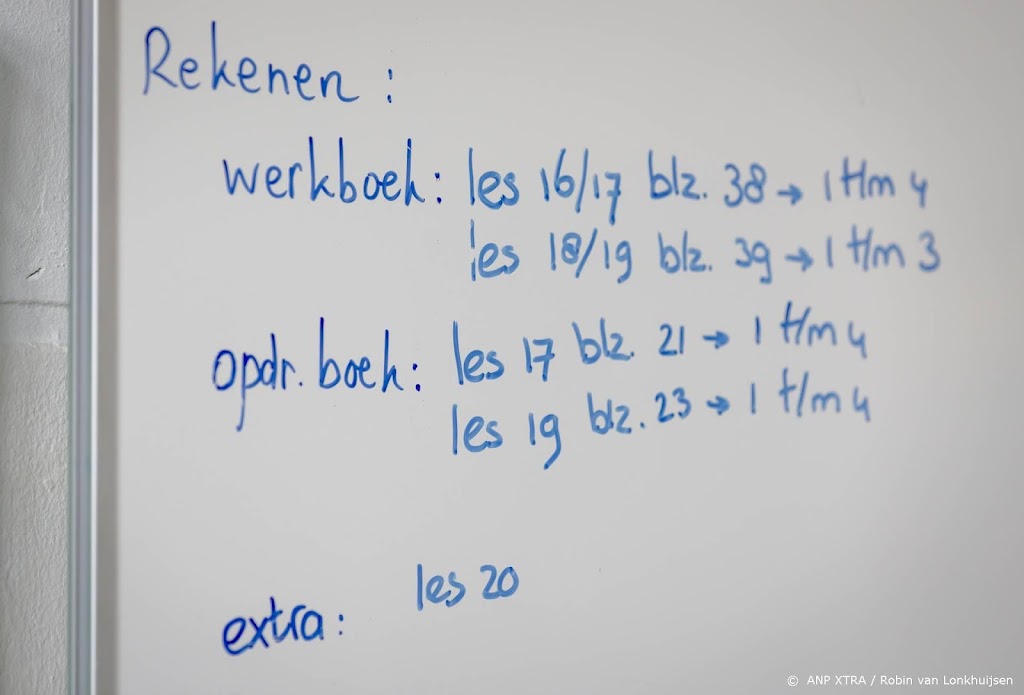 Rekenen :
werkboek: les 16/17 blz. 38 → 1 t/m 4
les 18/19 blz. 39 → 1 t/m 3
opdr. boek: les 17 blz. 21 → 1 t/m 4
les 19 blz. 23 → 1 t/m 4
les 20
extra:
© ANP XTRA / Robin van Lonkhuijsen